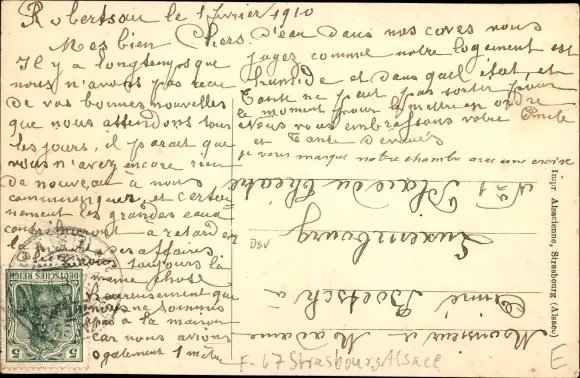 Robertsau le 1 fevrier 1910
Mes bien Chers
Il y a longtemps que
nous n'avons pas recu
de vos bonnes nouvelles
que nous attendons tous
les jours, il parait que
vous n'avez encore rien
de nouveau à nous
communiquer, et certai
nement les grandes eaux
contribueront à retard er
les affaires
toujours la
meme chose
heureusement que
nous ne sommes
pas à la maison
car nous avions
egalement 1 mètre
d'eau dans nos caves vous
jugez comme notre logement est
humide et dans quel état, et
Tante ne peut pas sortir pour
le moment pour le mettre en ordre
Nous vous embrassons votre Emile
et Tante devoués
je vous marque notre chambre avec une croix
Monsieur et Madame
Aimé Boetsch à
Luxembourg
No 1 Place du Théâtre
DSV
Impr. Alsacienne, Strasbourg (Alsace)
DEUTSCHES REICH
5 5
F-67 Strasbourg Alsace
E